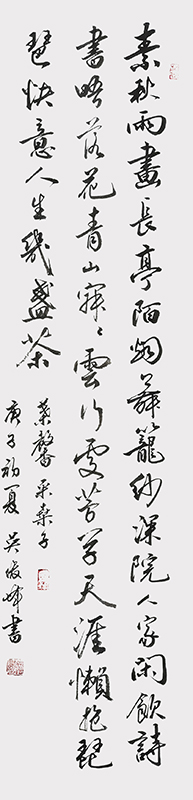 素秋雨畫長亭陌烟籠紗深院人家閑飲詩
書晤落花青山雲行天涯懶抱琵
琶快意人生幾盞茶
葉馨采桑子
庚子初夏 吳俊峰書